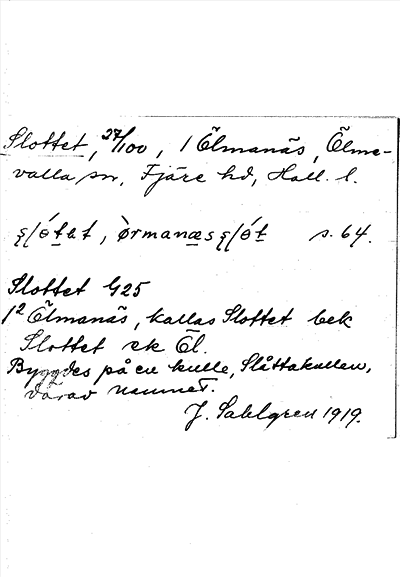 Slottet, 27/100, 1 Ölmanäs, Ölme-
valla sn, Fjäre hd, Hall. l.
s. 64.
Slottet G25
1² Ölmanäs, kallas Slottet bek
Slottet ek Öl.
Byggdes på en kulle, Slåttakullen,
därav namnet.
J. Sahlgren 1919.